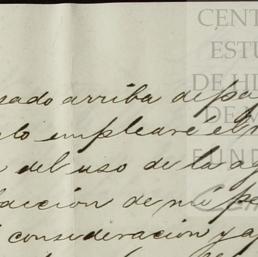 CENT
ESTU
DE HI
DE M
FUND
sado arriba de pa
lo emplearé el
del uso de la a
dacción de mi pe
consideración y a